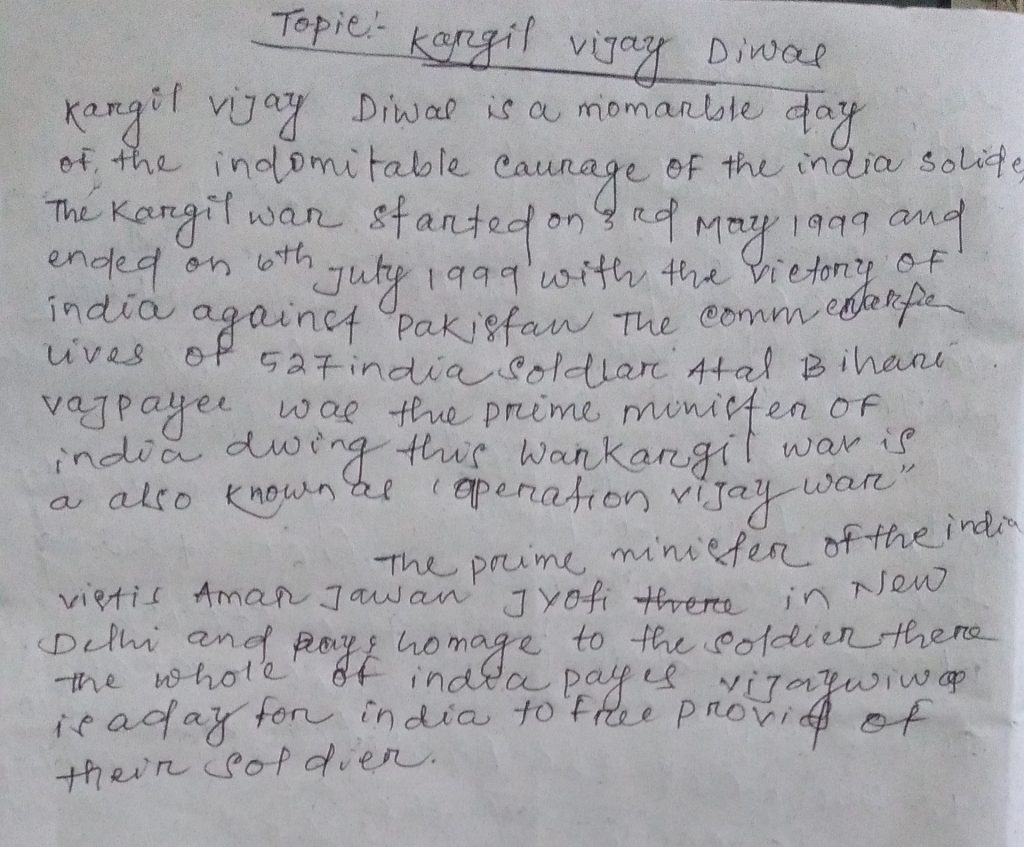 Topic:- Kargil vijay Diwas
Kargil vijay Diwas is a momarible day
of, the indomitable caurage of the india solide
The Kargil war started on 3rd May 1999 and
ended on 6th July 1999 with the victory of
india against Pakistan The comm
lives of 527 india soldiar Atal Bihari
vajpayee was thue prime minister of
india dwing this warkargil war is
a also known as "operation vijay war"
The prime minister of the india
vistis Amar Jawan Jyoti threre in New
Delhi and pays homage to the soldier there
The whole of india payes vijaywiwas
is a day for india to free provid of
their soldier.